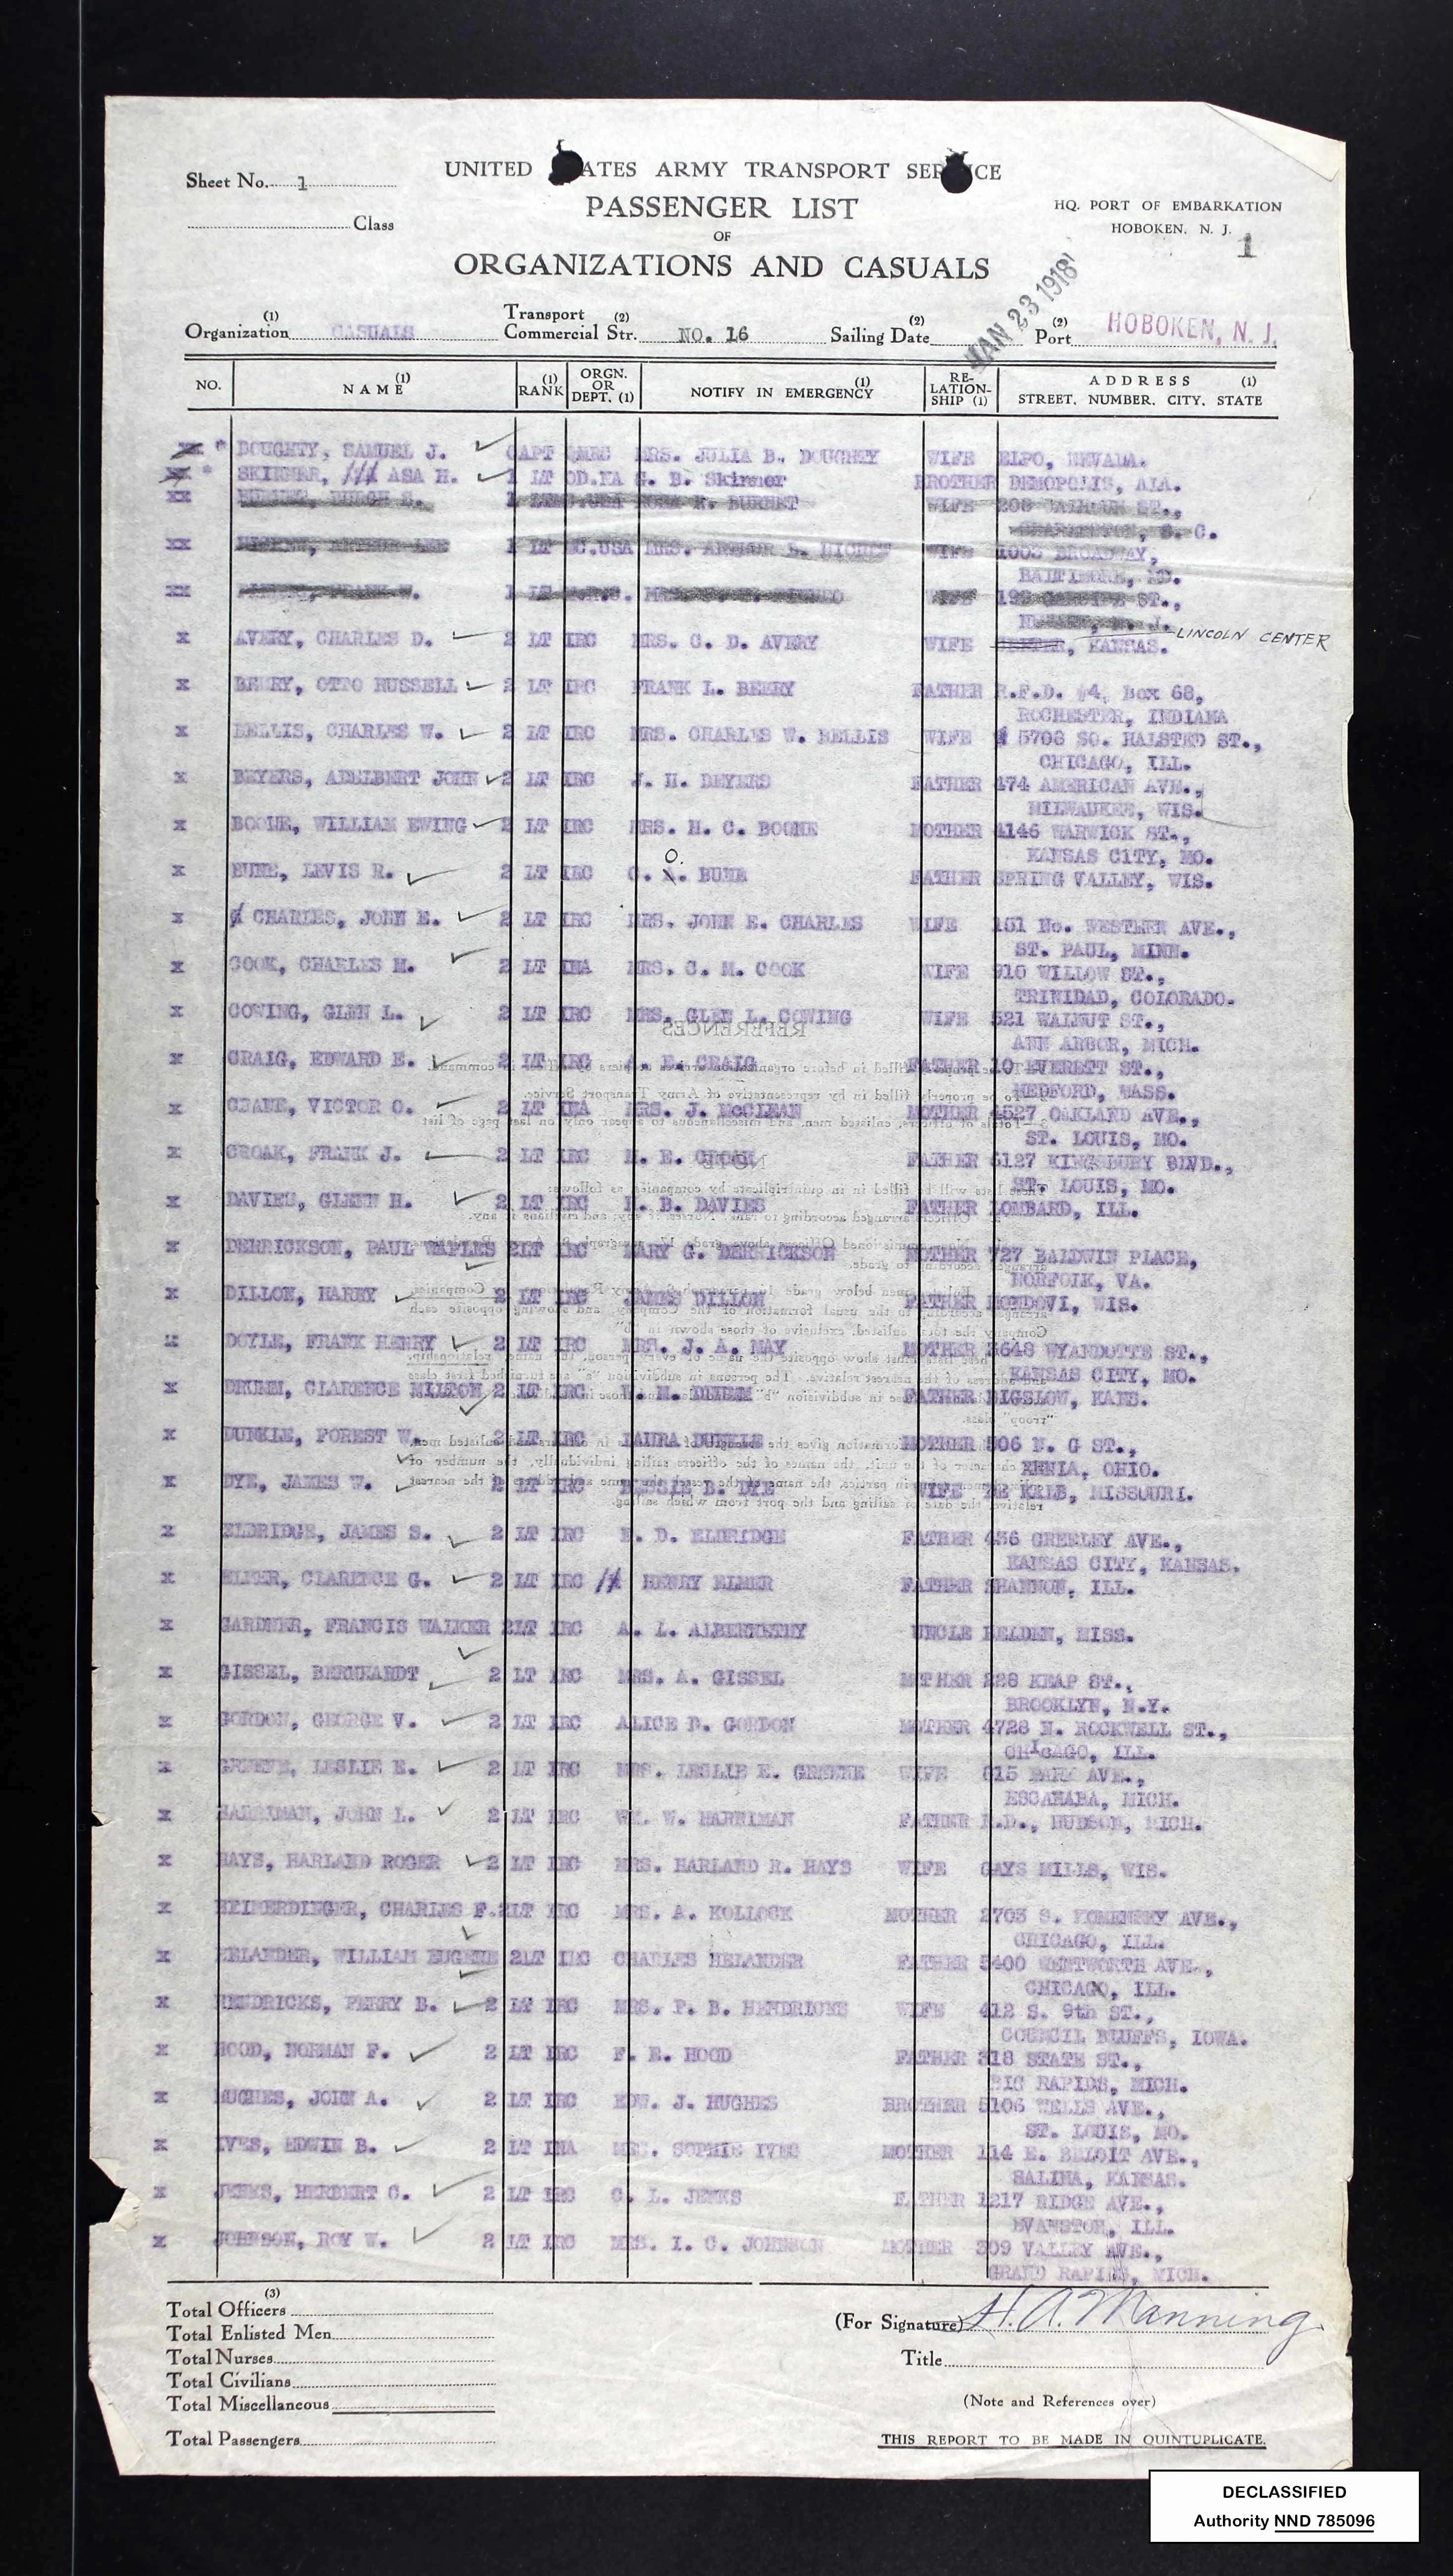 Sheet No. 1
UNITED ATES ARMY TRANSPORT SER CE
PASSENGER LIST
OF
ORGANIZATIONS AND CASUALS
Class
HQ. PORT OF EMBARKATION
HOBOKEN, N. J.
1
(1) Organization CASUALS Transport Commercial Str. (2) NO. 16 Sailing Date (2) JAN 23 1918 Port (2) HOBOKEN, N. J.
NO. NAME (1) RANK (1) ORGN. OR DEPT. (1) NOTIFY IN EMERGENCY (1) RE-LATION-SHIP (1) ADDRESS (1) STREET, NUMBER, CITY, STATE
* DOUGHTY, SAMUEL J. CAPT QMRC MRS. JULIA B. DOUGHTY WIFE ELPO, NEVADA.
* SKINNER, ASA H. 1 LT OD.NA G. B. Skinner BROTHER DEMOPOLIS, ALA.
XX 1 LT BURNET WIFE 208 ST.,
S. C.
XX 1 LT MC.USA MRS. ARTHUR WIFE 1003 BROADWAY,
BALTIMORE, MD.
XX WIFE ST.,
N. J.
X AVERY, CHARLES D. 2 LT IRC MRS. C. D. AVERY WIFE CENTER, KANSAS. LINCOLN CENTER
X BERRY, OTTO RUSSELL 2 LT IRC FRANK L. BERRY FATHER R.F.D. #4, Box 68,
ROCHESTER, INDIANA
X BELLIS, CHARLES W. 2 LT IRC MRS. CHARLES W. BELLIS WIFE 5708 SO. HALSTED ST.,
CHICAGO, ILL.
X BEYERS, ADELBERT JOHN 2 LT IRC J. H. BEYERS FATHER 474 AMERICAN AVE.,
MILWAUKEE, WIS.
X BOONE, WILLIAM EWING 2 LT IRC MRS. H. C. BOONE MOTHER 4146 WARWICK ST.,
KANSAS CITY, MO.
X BUNE, LEVIS R. 2 LT IRC O. O. BUNE FATHER SPRING VALLEY, WIS.
X CHARLES, JOHN E. 2 LT IRC MRS. JOHN E. CHARLES WIFE 151 No. WESTERN AVE.,
ST. PAUL, MINN.
X COOK, CHARLES M. 2 LT INA MRS. C. M. COOK WIFE 910 WILLOW ST.,
TRINIDAD, COLORADO.
X COWING, GLEN L. 2 LT IRC MRS. GLEN L. COWING WIFE 521 WALNUT ST.,
ANN ARBOR, MICH.
X CRAIG, EDWARD E. 2 LT IRC A. E. CRAIG FATHER 10 EVERETT ST.,
MEDFORD, MASS.
X CRANE, VICTOR O. 2 LT INA MRS. J. McCLEAN MOTHER 4527 OAKLAND AVE.,
ST. LOUIS, MO.
X CROAK, FRANK J. 2 LT IRC M. E. CROAK FATHER 5127 KINGSBURY BLVD.,
ST. LOUIS, MO.
X DAVIES, GLENN H. 2 LT IRC B. DAVIES FATHER LOMBARD, ILL.
X DERRICKSON, PAUL WAPLES 2LT IRC MARY G. DERRICKSON MOTHER 727 BALDWIN PLACE,
NORFOLK, VA.
X DILLON, HARRY 2 LT IRC JAMES DILLON FATHER MONDOVI, WIS.
X DOYLE, FRANK HENRY 2 LT IRC MRS. J. A. MAY MOTHER 3648 WYANDOTTE ST.,
KANSAS CITY, MO.
X DRUMM, CLARENCE MILTON 2 LT IRC W. M. DRUMM FATHER BIGELOW, KANS.
X DUNKLE, FOREST W. 2 LT IRC LAURA DUNKLE MOTHER 506 N. G ST.,
XENIA, OHIO.
X DYE, JAMES W. 2 LT IRC BESSIE B. DYE WIFE DE KALB, MISSOURI.
X ELDRIDGE, JAMES S. 2 LT IRC E. D. ELDRIDGE FATHER 436 GREELEY AVE.,
KANSAS CITY, KANSAS.
X ELMER, CLARENCE G. 2 LT IRC HENRY ELMER FATHER SHANNON, ILL.
X GARDNER, FRANCIS WALKER 2LT IRC A. L. ALBERNETHY UNCLE BELDEN, MISS.
X GISSEL, BERNHARDT 2 LT IRC MRS. A. GISSEL MOTHER 228 KEAP ST.,
BROOKLYN, N.Y.
X GORDON, GEORGE V. 2 LT IRC ALICE D. GORDON MOTHER 4728 N. ROCKWELL ST.,
CHICAGO, ILL.
X GREENE, LESLIE E. 2 LT IRC MRS. LESLIE E. GREENE WIFE 615 PARK AVE.,
ESCANABA, MICH.
X HARRIMAN, JOHN L. 2 LT IRC WM. W. HARRIMAN FATHER R.D., HUDSON, MICH.
X HAYS, HARLAND ROGER 2 LT IRC MRS. HARLAND R. HAYS WIFE GAYS MILLS, WIS.
X HEIMERDINGER, CHARLES F. 2LT IRC MRS. A. KOLLOCK MOTHER 2703 S. KOMENSKY AVE.,
CHICAGO, ILL.
X HELANDER, WILLIAM EUGENE 2LT IRC CHARLES HELANDER FATHER 5400 WENTWORTH AVE.,
CHICAGO, ILL.
X HENDRICKS, PERRY B. 2 LT IRC MRS. P. B. HENDRICKS WIFE 412 S. 9th ST.,
COUNCIL BLUFFS, IOWA.
X HOOD, NORMAN F. 2 LT IRC F. E. HOOD FATHER 318 STATE ST.,
BIG RAPIDS, MICH.
X HUGHES, JOHN A. 2 LT IRC EDW. J. HUGHES BROTHER 5106 WELLS AVE.,
ST. LOUIS, MO.
X IVES, EDWIN B. 2 LT INA MRS. SOPHIE IVES MOTHER 114 E. BELOIT AVE.,
SALINA, KANSAS.
X JENKS, HERBERT C. 2 LT IRC C. L. JENKS FATHER 1217 RIDGE AVE.,
EVANSTON, ILL.
X JOHNSON, ROY W. 2 LT IRC MRS. I. C. JOHNSON MOTHER 309 VALLEY AVE.,
GRAND RAPIDS, MICH.
(3)
Total Officers
Total Enlisted Men
Total Nurses
Total Civilians
Total Miscellaneous
Total Passengers
(For Signature) H. A. Manning
Title
(Note and References over)
THIS REPORT TO BE MADE IN QUINTUPLICATE.
DECLASSIFIED
Authority NND 785096